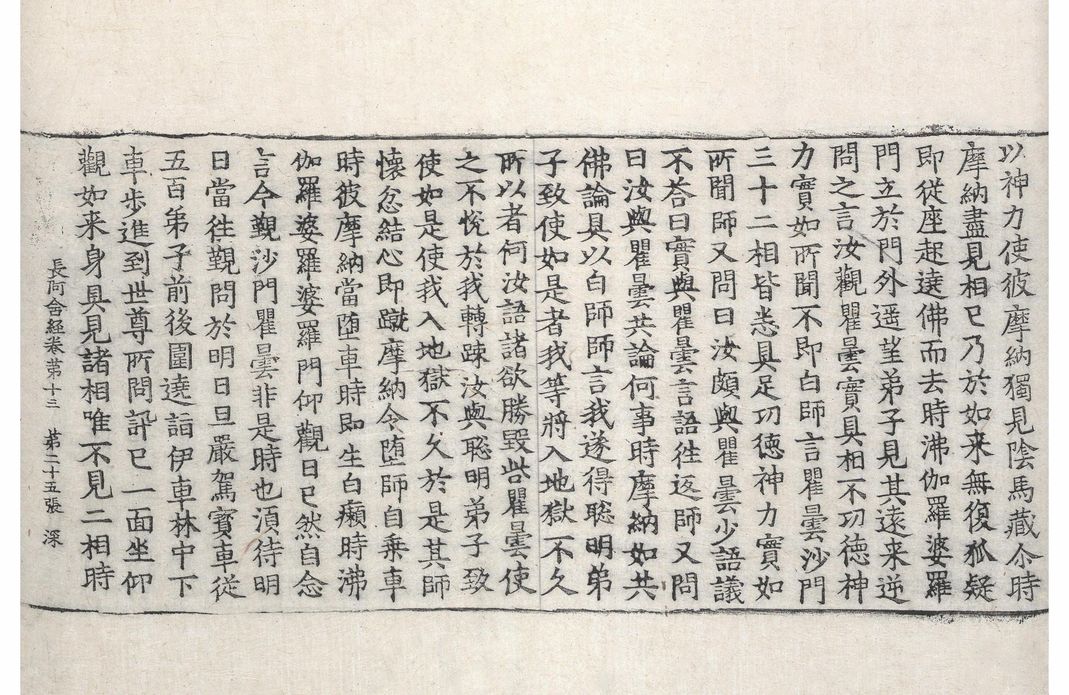 以神力使彼摩納獨見陰馬藏尒時
摩納盡見相已乃於如来無復狐疑
即從座起遶佛而去時沸伽羅婆羅
門立於門外遥望弟子見其遠来逆
問之言汝觀瞿曇實具相不功德神
力實如所聞不即白師言瞿曇沙門
三十二相皆悉具足功德神力實如
所聞師又問曰汝頗與瞿曇少語議
不荅曰實與瞿曇言語往返師又問
曰汝與瞿曇共論何事時摩納如共
佛論具以白師師言我遂得聡明弟
子致使如是者我等將入地獄不久
所以者何汝語諸欲勝毀呰瞿曇使
之不恱於我轉踈汝與聡明弟子致
使如是使我入地獄不久於是其師
懷忿結心即蹴摩納令堕師自乗車
時彼摩納當堕車時即生白癩時沸
伽羅婆羅婆羅門仰觀日已然自念
言今覲沙門瞿曇非是時也湏待明
日當往覲問於明日旦嚴駕寳車從
五百弟子前後圍遶詣伊車林中下
車步進到世尊所問訊已一面坐仰
觀如来身具見諸相唯不見二相時
長阿含経卷苐十三 苐二十五張 深